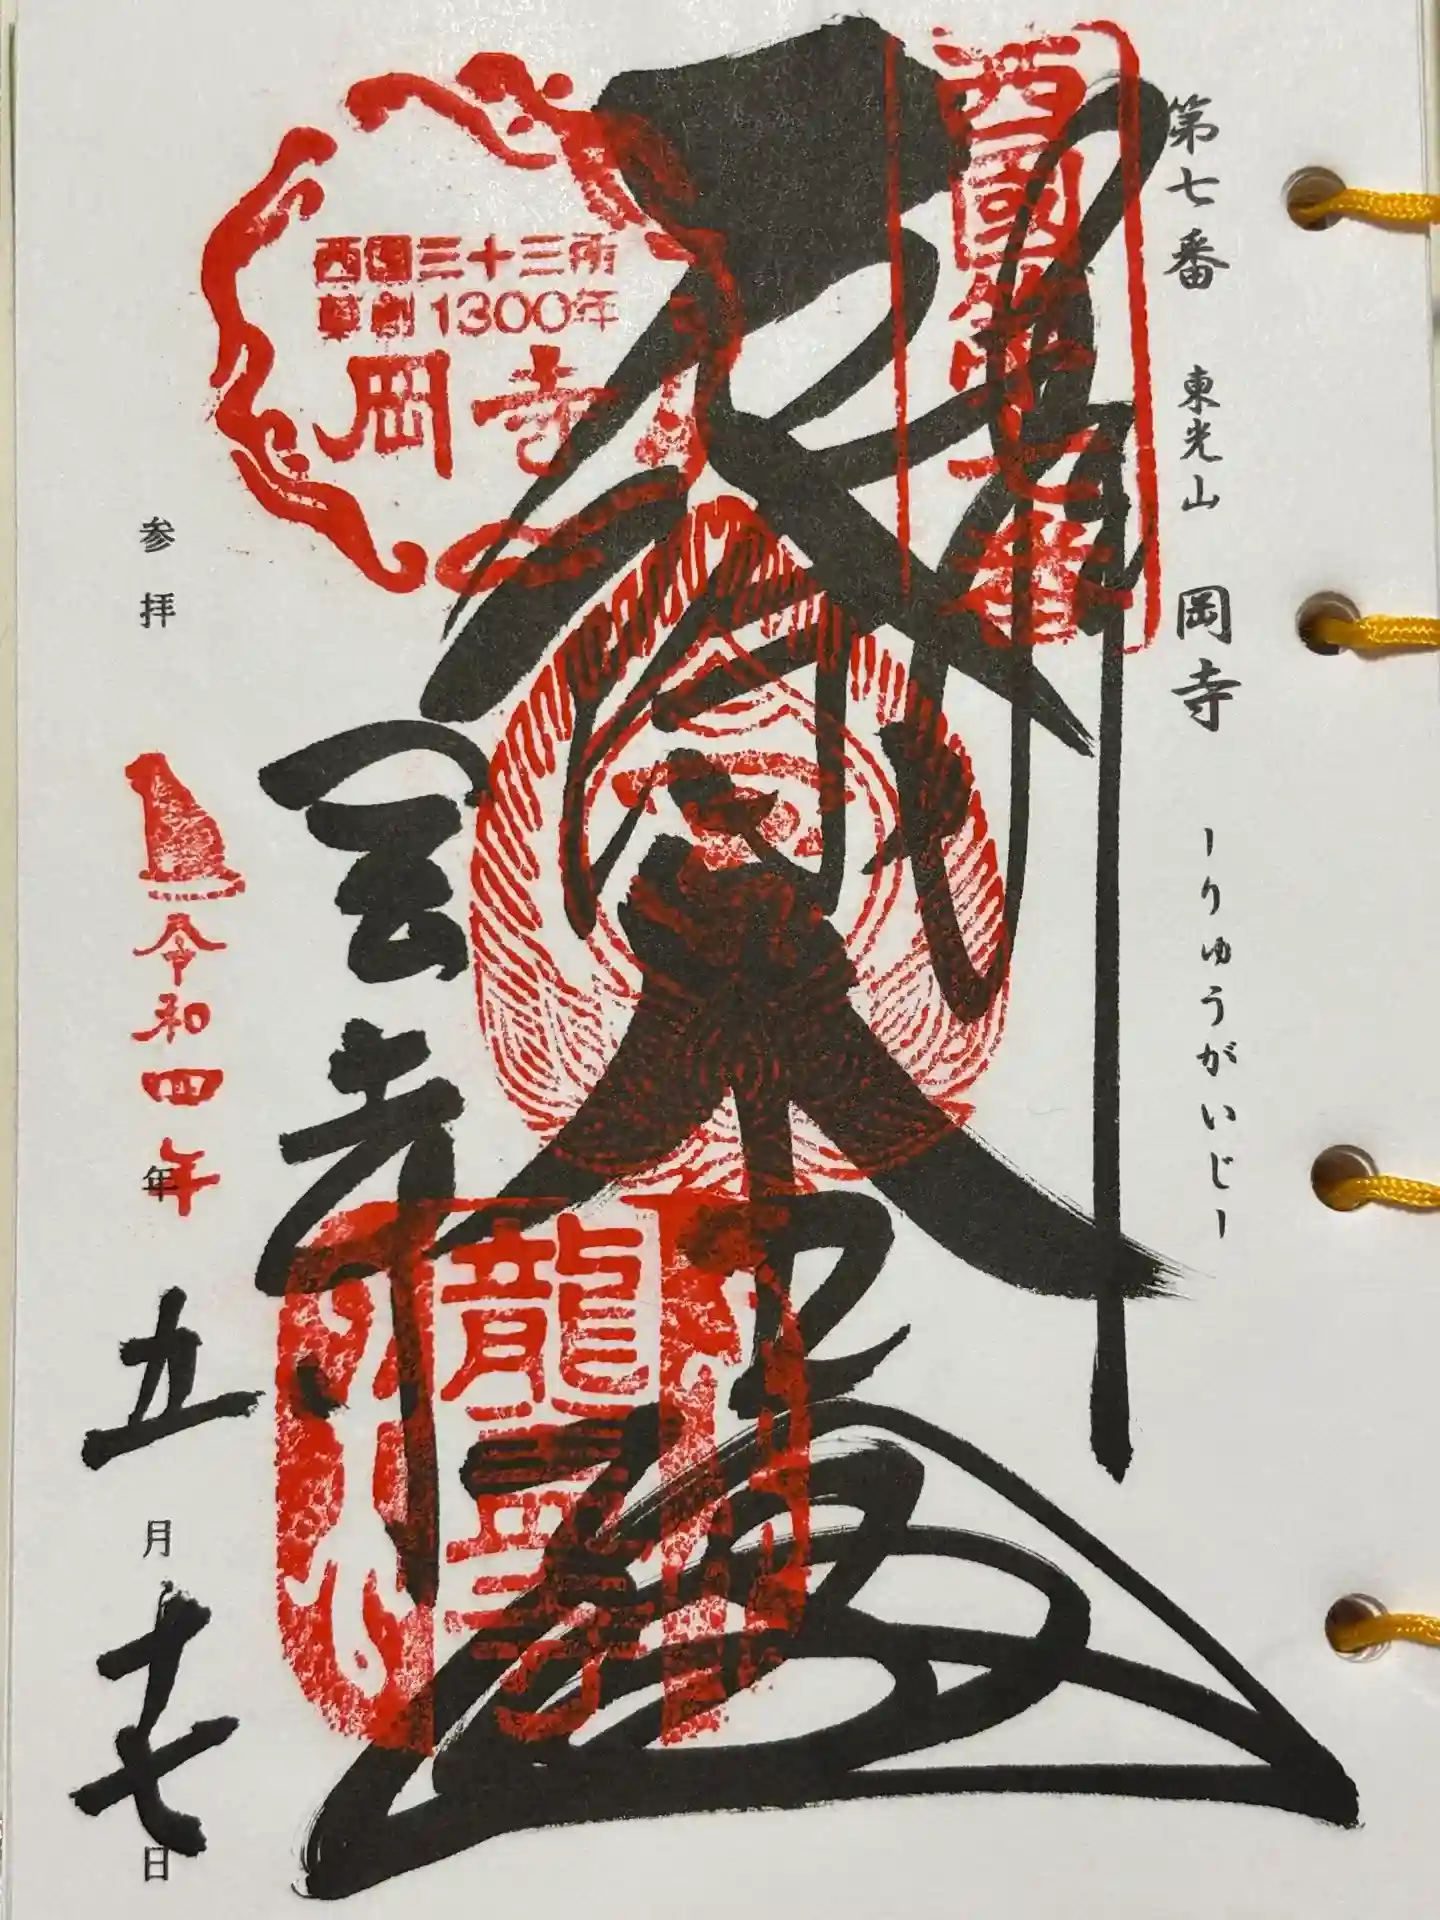 第七番 東光山 岡寺 ーりゅうがいじー
西國第七番
西国三十三所
草創1300年
岡寺
岡寺
龍蓋寺
参拝 令和四年 年 五月十七日